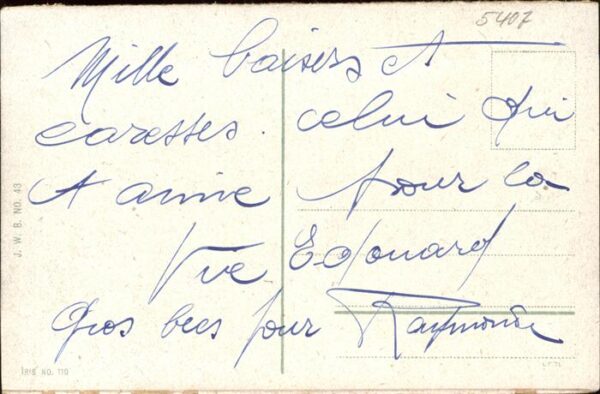 5407
Mille baisers et
caresses. celui qui
t aime pour la
Vie Edouard
Gros becs pour Raymonde
J. W. B. NO. 43
IRIS NO. 110